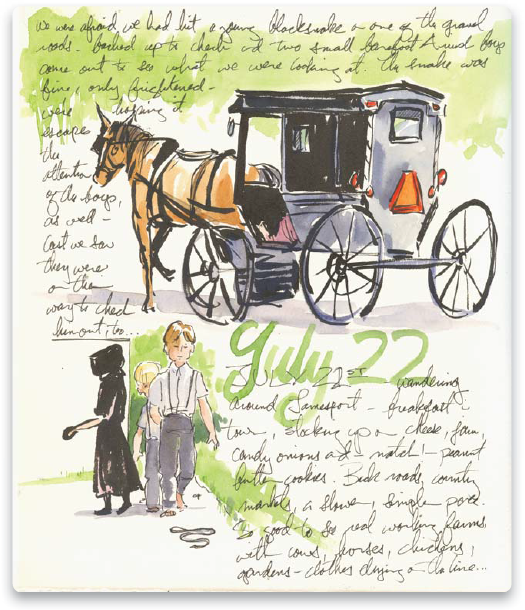 we were afraid we had hit a young blacksnake on one of the gravel
roads. Backed up to check and two small barefoot Amish boys
came out to see what we were looking at. The snake was
fine, only frightened -
were hoping it
escapes
the
attention
of the boys,
as well -
Last we saw
they were
on their
way to check
him out, too...
July 22
JULY 22ST - wandering
around Jamesport - breakfast in
town, stocking up on cheese, jam,
candy onions and match - peanut
butter cookies. Back roads, country
markets, a slower, simpler pace.
So good to see real working farms,
with cows, horses, chickens,
gardens - clothes drying on the line...